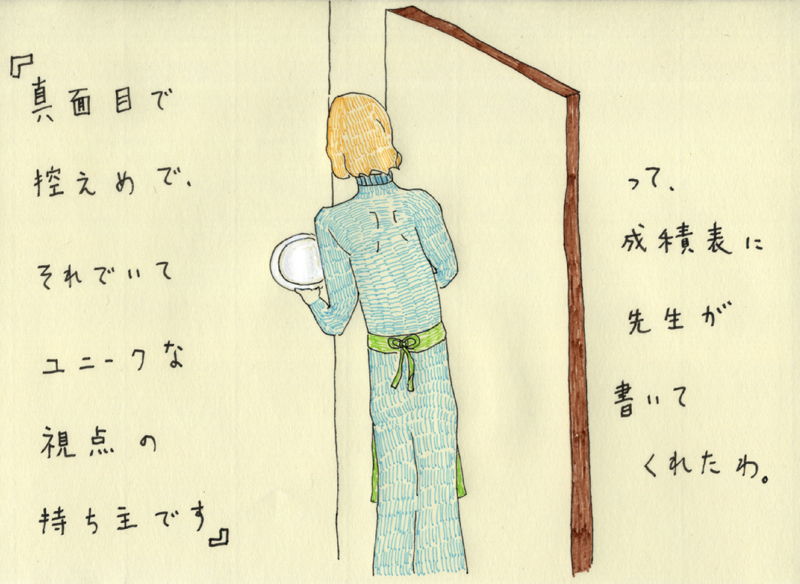 『真面目で
控えめで、
それでいて
ユニークな
視点の
持ち主です』
って、
成積表に
先生が
書いて
くれたわ。